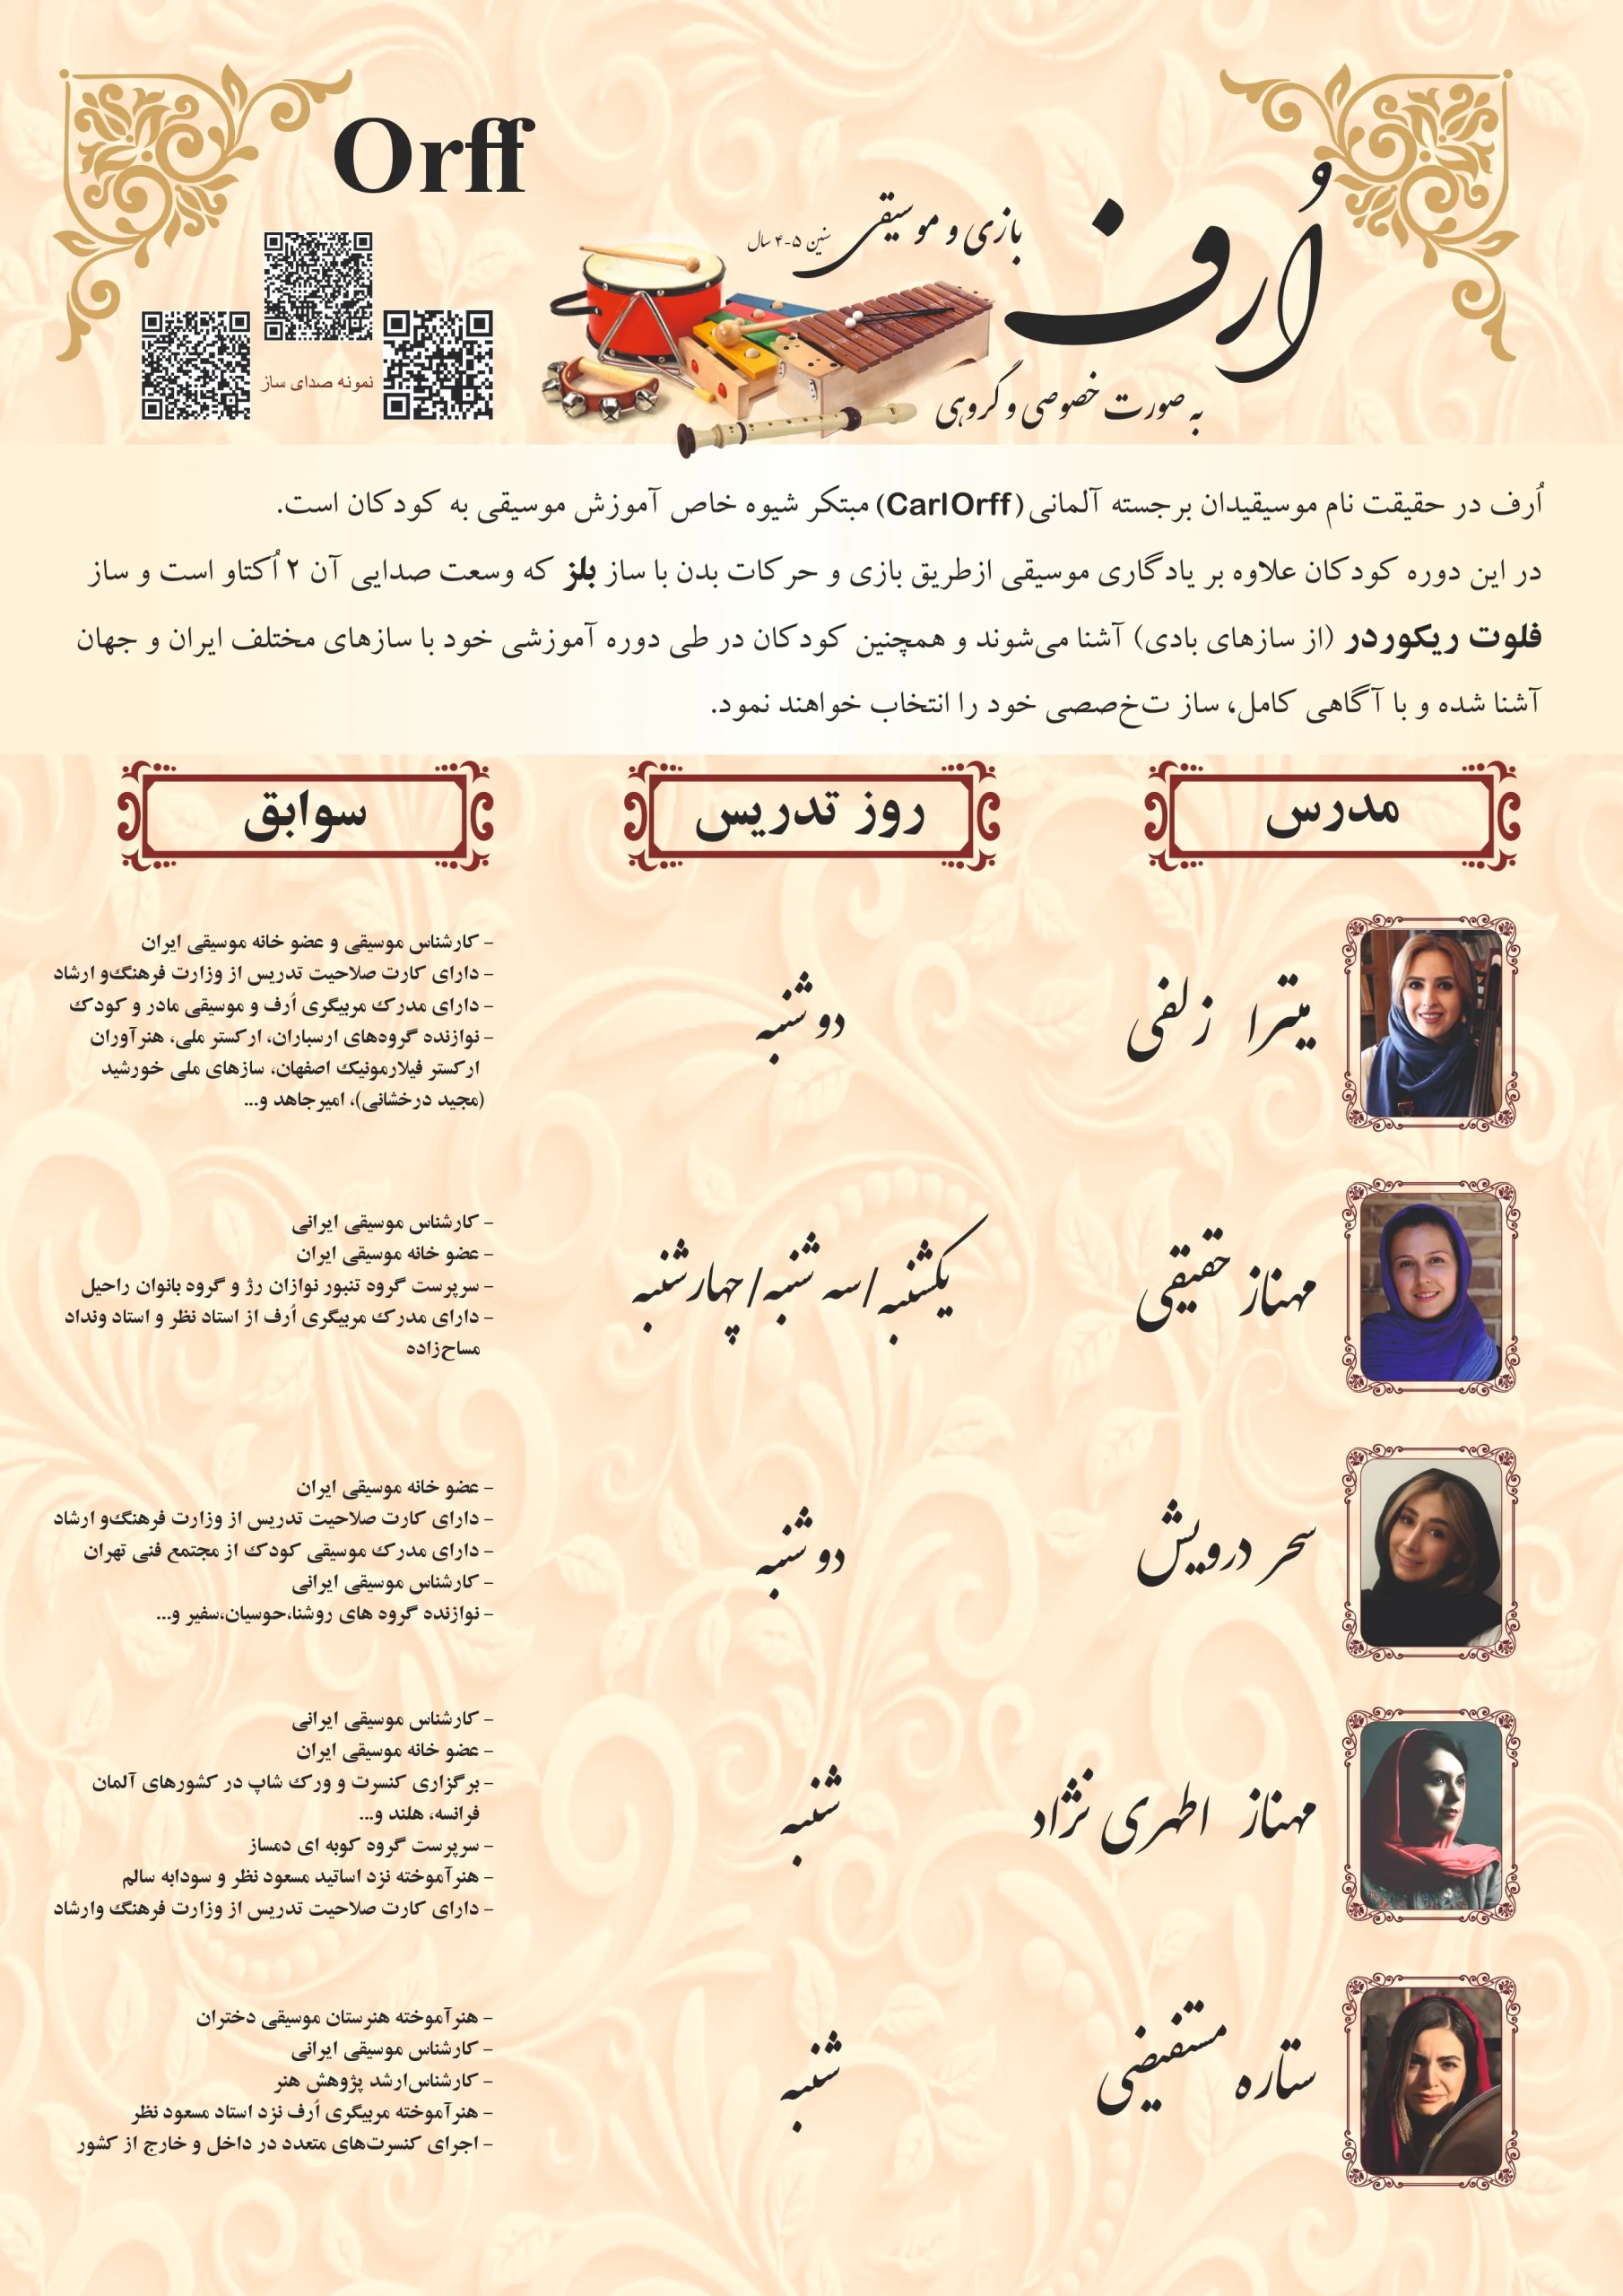 Orff
اُرف
بازی و موسیقی
سنین ۵-۴ سال
نمونه صدای ساز
به صورت خصوصی و گروهی
اُرف در حقیقت نام موسیقیدان برجسته آلمانی (CarlOrff) مبتکر شیوه خاص آموزش موسیقی به کودکان است.
در این دوره کودکان علاوه بر یادگاری موسیقی ازطریق بازی و حرکات بدن با ساز بلز که وسعت صدایی آن ۲ اُکتاو است و ساز
فلوت ریکوردر (از سازهای بادی) آشنا می‌شوند و همچنین کودکان در طی دوره آموزشی خود با سازهای مختلف ایران و جهان
آشنا شده و با آگاهی کامل، ساز تخصصی خود را انتخاب خواهند نمود.
مدرس
روز تدریس
سوابق
میترا زلفی
دوشنبه
- کارشناس موسیقی و عضو خانه موسیقی ایران
- دارای کارت صلاحیت تدریس از وزارت فرهنگ‌و ارشاد
- دارای مدرک مربیگری اُرف و موسیقی مادر و کودک
- نوازنده گروه‌های ارسباران، ارکستر ملی، هنرآوران
ارکستر فیلارمونیک اصفهان، سازهای ملی خورشید
(مجید درخشانی)، امیرجاهد و...
مهناز حقیقی
یکشنبه/سه شنبه/چهارشنبه
- کارشناس موسیقی ایرانی
- عضو خانه موسیقی ایران
- سرپرست گروه تنبور نوازان رژ و گروه بانوان راحیل
- دارای مدرک مربیگری اُرف از استاد نظر و استاد ونداد
مساح‌زاده
سحر درویش
دوشنبه
- عضو خانه موسیقی ایران
- دارای کارت صلاحیت تدریس از وزارت فرهنگ‌و ارشاد
- دارای مدرک موسیقی کودک از مجتمع فنی تهران
- کارشناس موسیقی ایرانی
- نوازنده گروه های روشنا،حوسیان،سفیر و...
مهناز اطهری نژاد
شنبه
- کارشناس موسیقی ایرانی
- عضو خانه موسیقی ایران
- برگزاری کنسرت و ورک شاپ در کشورهای آلمان
فرانسه، هلند و...
- سرپرست گروه کوبه ای دمساز
- هنرآموخته نزد اساتید مسعود نظر و سودابه سالم
- دارای کارت صلاحیت تدریس از وزارت فرهنگ وارشاد
ستاره مستفیضی
شنبه
- هنرآموخته هنرستان موسیقی دختران
- کارشناس موسیقی ایرانی
- کارشناس‌ارشد پژوهش هنر
- هنرآموخته مربیگری اُرف نزد استاد مسعود نظر
- اجرای کنسرت‌های متعدد در داخل و خارج از کشور